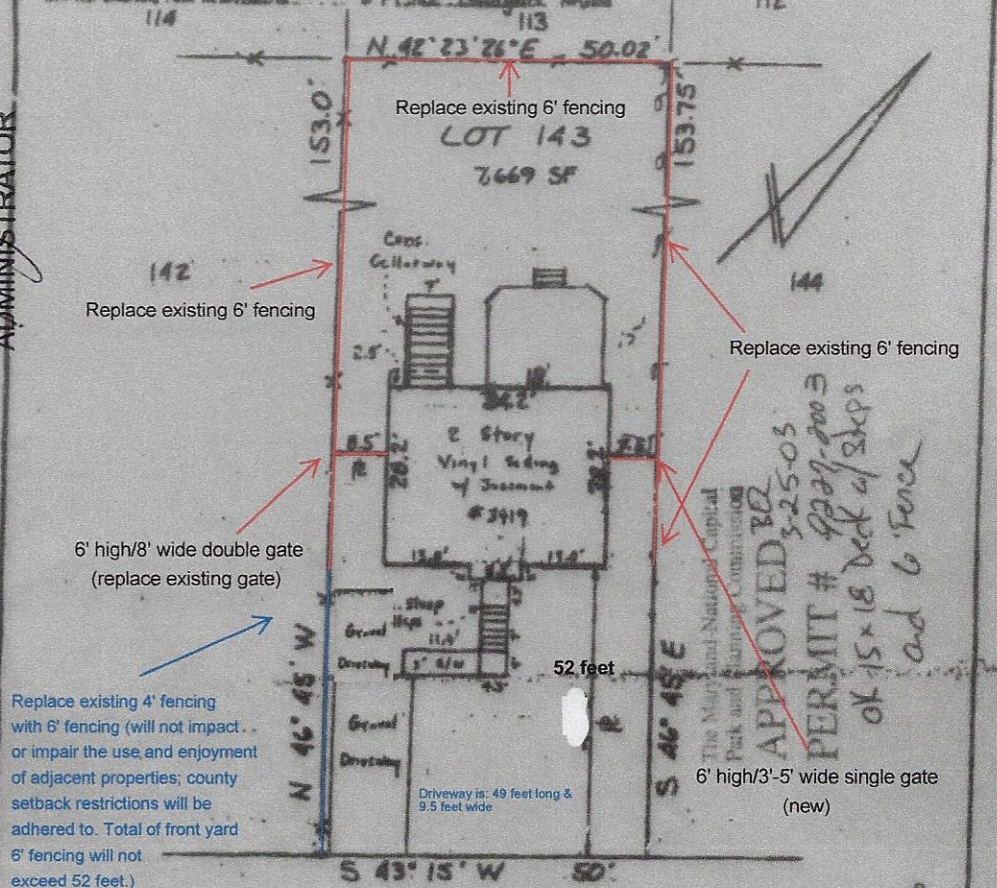 114
113
112
N 42° 23' 26" E 50.02'
Replace existing 6' fencing
LOT 143
7,669 SF
153.0'
153.75'
ADMINISTRATOR
Conc.
Cellarway
142
144
Replace existing 6' fencing
Replace existing 6' fencing
7'
2.5'
18'
34.2'
8.5'
28.2'
2 Story
Vinyl Siding
w/ Basement
#3919
28.2'
6' high/8' wide double gate
(replace existing gate)
13.0'
13.0'
Stoop
Steps
Gravel
11.4'
Driveway
3' R/W
52 feet
Gravel
Driveway
N 46° 45' W
S 46° 45' E
Replace existing 4' fencing
with 6' fencing (will not impact
or impair the use and enjoyment
of adjacent properties; county
setback restrictions will be
adhered to. Total of front yard
6' fencing will not
exceed 52 feet.)
Driveway is: 49 feet long &
9.5 feet wide
6' high/3'-5' wide single gate
(new)
The Maryland National Capital
Park and Planning Commission
APPROVED
3-25-03
PERMIT # 9227-2003
OK 15x18 Deck w/ Steps
and 6' Fence
S 43° 15' W 50'